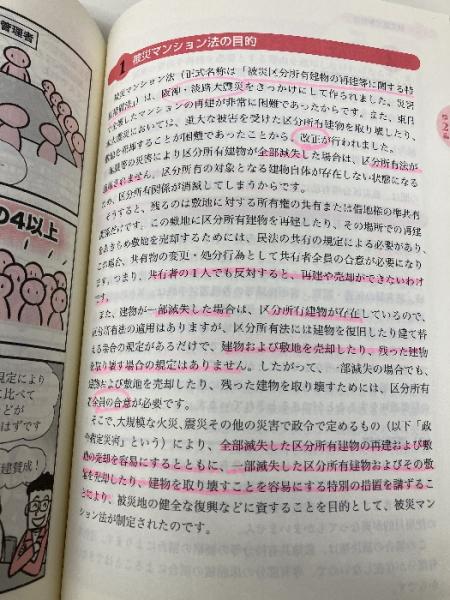 管理者
の4以上
規定により
に比べて
どが
はずです
建賛成！
1 被災マンション法の目的
被災マンション法（正式名称は「被災区分所有建物の再建等に関する特
別措置法」）は、阪神・淡路大震災をきっかけにして作られました。災害
で全壊したマンションの再建が非常に困難であったからです。また、東日
本大震災においては、重大な被害を受けた区分所有建物を取り壊したり、
敷地を売却することが困難であったことから、改正が行われました。
震等の災害により区分所有建物が全部滅失した場合は、区分所有法が
適用されません。区分所有の対象となる建物自体が存在しない状態になる
ため、区分所有関係が消滅してしまうからです。
そうすると、残るのは敷地に対する所有権の共有または借地権の準共有
関係だけです。この敷地に区分所有建物を再建したり、その場所での再建
をあきらめ敷地を売却するためには、民法の共有の規定による必要があり、
この場合、共有物の変更・処分行為として共有者全員の合意が必要になり
ます。つまり、共有者の１人でも反対すると、再建や売却ができないわけ
です。
また、建物が一部滅失した場合は、区分所有建物が存在しているので、
区分所有法の適用はありますが、区分所有法には建物を復旧したり建て替
える場合の規定があるだけで、建物および敷地を売却したり、残った建物
を取り壊す場合の規定はありません。したがって、一部滅失の場合でも、
建物および敷地を売却したり、残った建物を取り壊すためには、区分所有
者全員の合意が必要です。
そこで、大規模な火災、震災その他の災害で政令で定めるもの（以下「政
令指定災害」という）により、全部滅失した区分所有建物の再建および敷
地の売却を容易にするとともに、一部滅失した区分所有建物およびその敷
地を売却したり、建物を取り壊すことを容易にする特別の措置を講ずるこ
とにより、被災地の健全な復興などに資することを目的として、被災マン
ション法が制定されたのです。
第2編